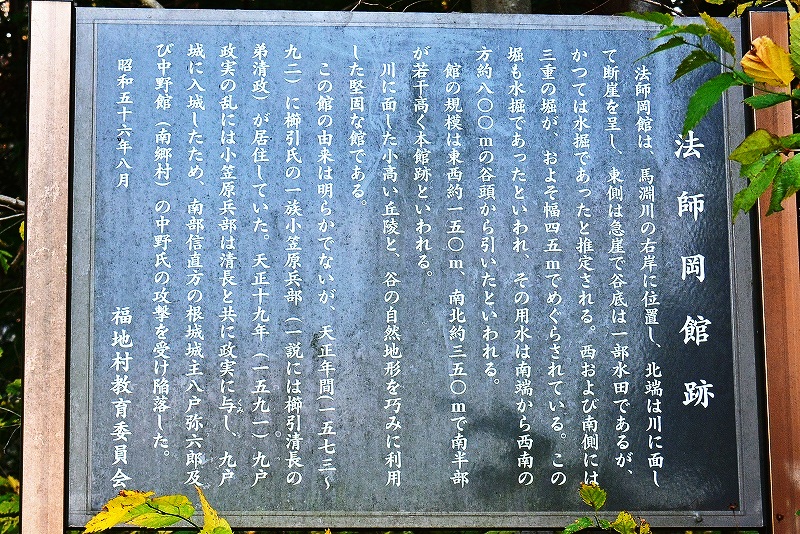 法師岡館跡
法師岡館は、馬淵川の右岸に位置し、北端は川に面し
て断崖を呈し、東側は急崖で谷底は一部水田であるが、
かつては水掘であったと推定される。西および南側には
三重の堀が、およそ幅四五mでめぐらされている。この
堀も水掘であったといわれ、その用水は南端から西南の
方約八〇〇mの谷頭から引いたといわれる。
館の規模は東西約一五〇m、南北約三五〇mで南半部
が若干高く本館跡といわれる。
川に面した小高い丘陵と、谷の自然地形を巧みに利用
した堅固な館である。
この館の由来は明らかでないが、天正年間(一五七三〜
九二)に櫛引氏の一族小笠原兵部(一説には櫛引清長の
弟清政)が居住していた。天正十九年(一五九一)九戸
政実の乱には小笠原兵部は清長と共に政実に与し、九戸
くみ
城に入城したため、南部信直方の根城城主八戸弥六郎及
び中野館(南郷村)の中野氏の攻撃を受け陥落した。
昭和五十六年八月
福地村教育委員会